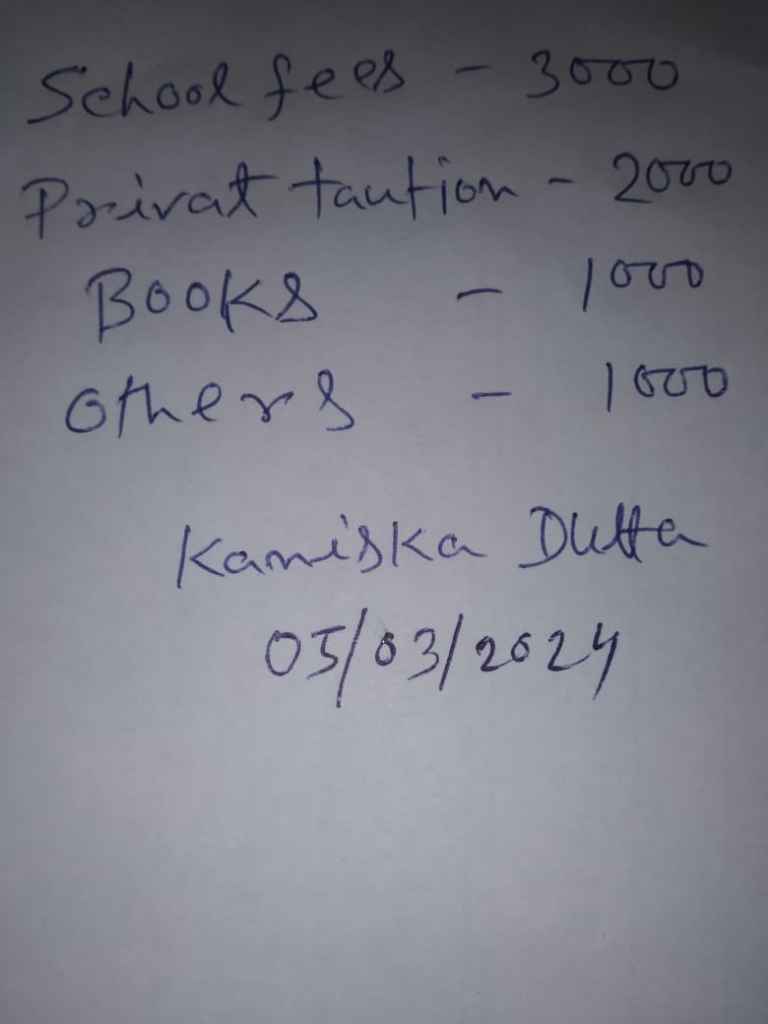 School fees - 3000
Privat taution - 2000
Books - 1000
Others - 1000
Kaniska Dutta
05/03/2024